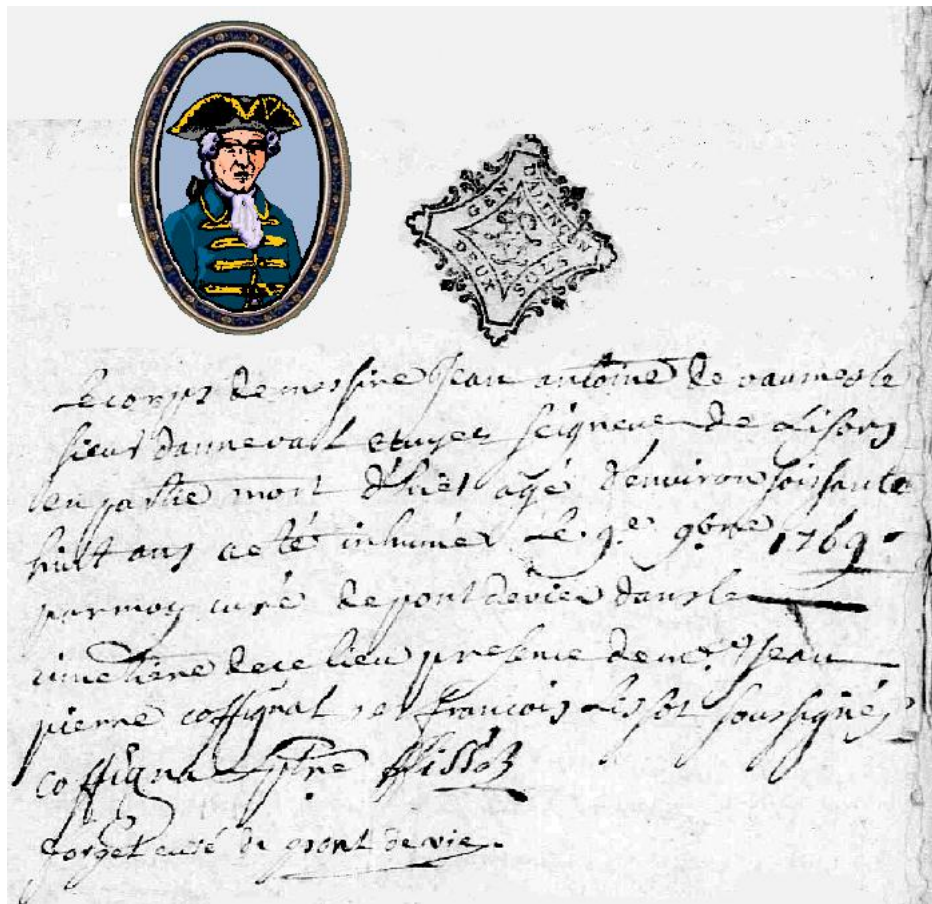 GEN D'ALENÇON
DEUX S
Le corps de messire Jean antoine de vaumesle
sieur dannevall ecuyer seigneur de Lisors
en partie mort d'hier agé d'environ soissante
huit ans a eté inhumér Le 9e 9bre 1769
par moy curé de pont de vie dans le
cimetiere de ce lieu presence de mre Jean
pierre coffignal et francois Lissot soussignés
coffignal ptre flissot
forget curé de pont de vie